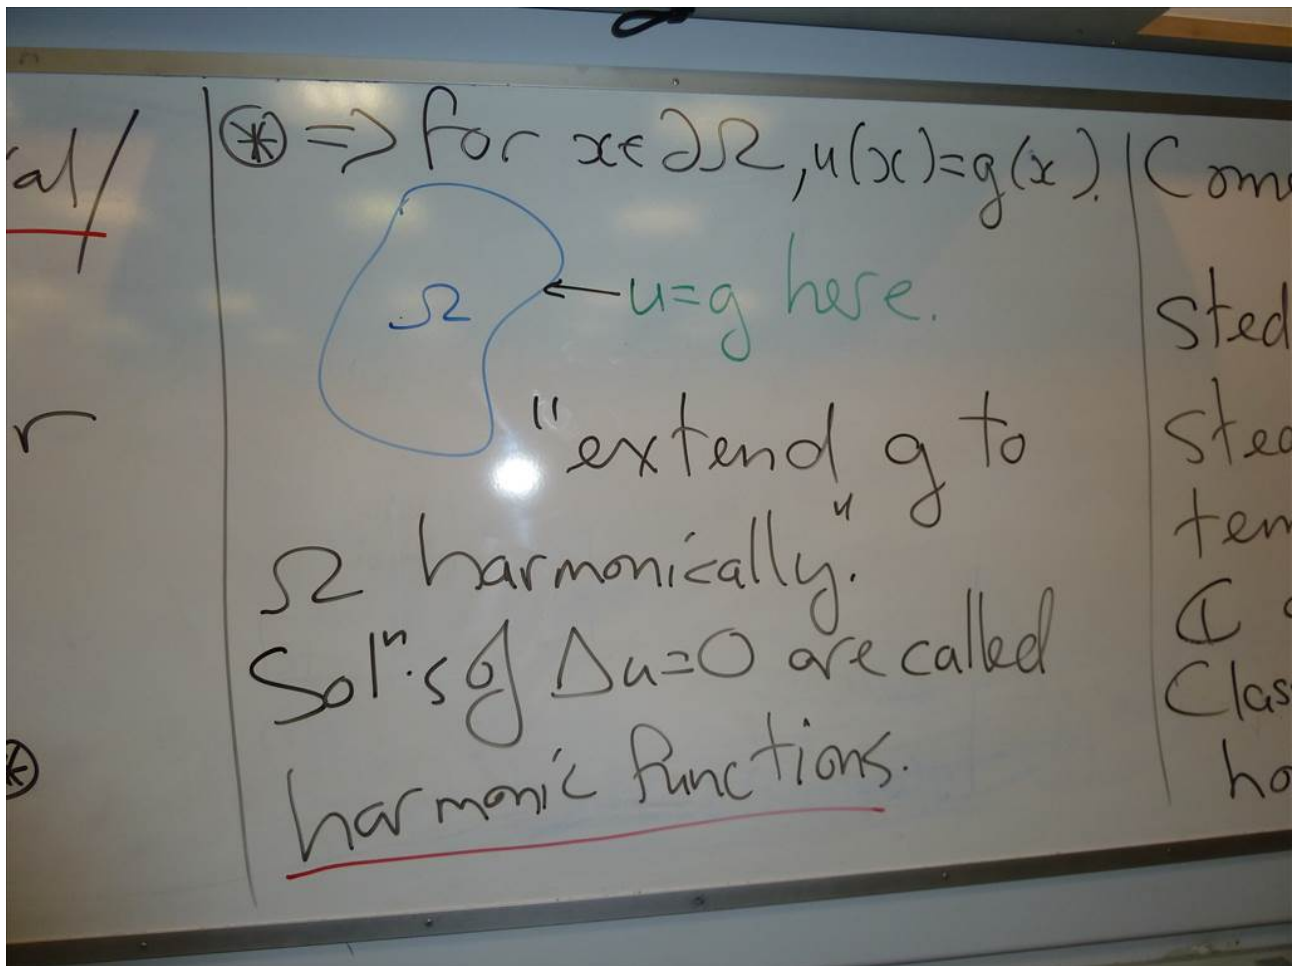 al/
r
⊛
⊛ => for x∈∂Ω, u(x)=g(x).
Ω
←u=g here.
"extend g to
Ω harmonically."
Solⁿ.s of Δu=0 are called
harmonic functions.
Com
Sted
Stea
tem
Clas
ho